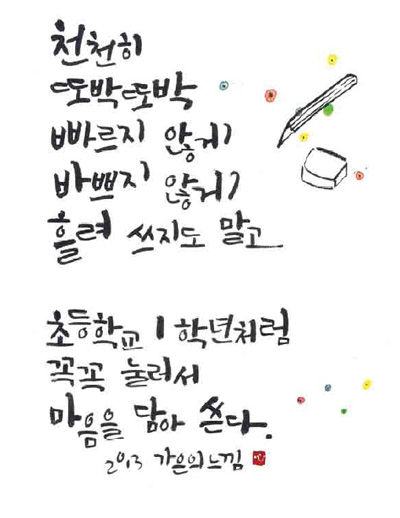 천천히
또박또박
빠르지 않게
바쁘지 않게
흘려 쓰지도 말고
초등학교 1학년처럼
꼭꼭 눌러서
마음을 담아 쓴다.
2013 가은의느낌